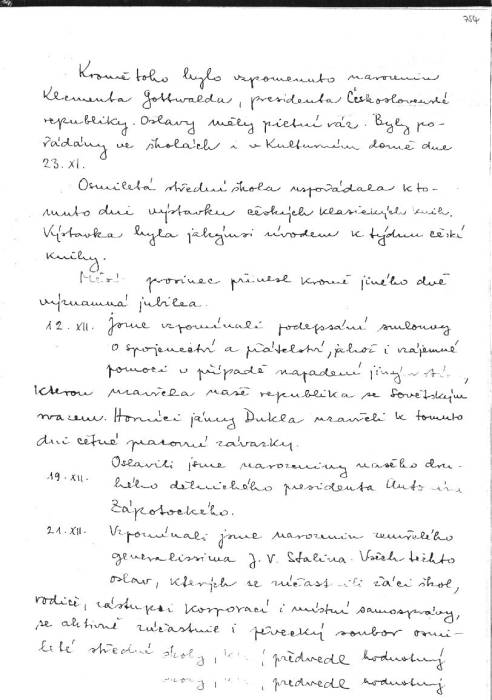 754
Kromě toho bylo vzpomenuto narozenin
Klementa Gottwalda, presidenta Československé
republiky. Oslavy měly pietní ráz. Byly po-
řádány ve školách i v Kulturním domě dne
23. XI.
Osmiletá střední škola uspořádala k to-
muto dni výstavku českých klasických knih.
Výstavka byla jakýmsi úvodem k týdnu české
knihy.
prosinec přinesl kromě jiného dvě
významná jubilea.
12. XII. Jsme vzpomínali podepsání smlouvy
o spojenectví a přátelství, jakož i vzájemné
pomoci v případě napadení jiným
kterou uzavřela naše republika se Sovětským
svazem. Horníci jámy Dukla uzavřeli k tomuto
dni četné pracovní závazky.
Oslavili jsme narozeniny našeho dru-
19. XII. hého dělnického presidenta
Zápotockého.
21. XII. Vzpomínali jsme narozenin zemřelého
generalissima J. V. Stalina. Všech těchto
oslav, kterých se žáci škol,
rodiče, zástupci korporací i místní samosprávy,
se aktivně zúčastnil i pěvecký soubor osmi-
leté střední školy, předvedl hodnotný
předvedl hodnotný